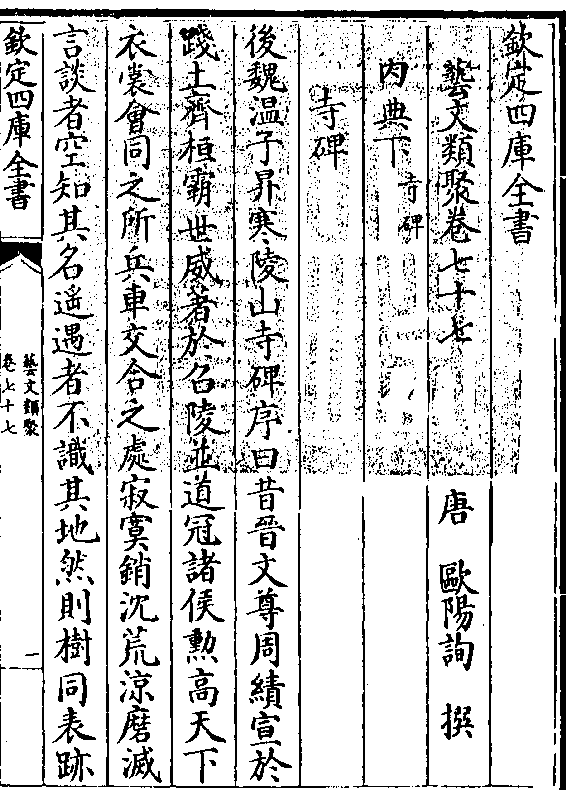 欽定四庫全書
藝文類聚卷七十七
唐 歐陽詢 撰
内典下寺碑
寺碑
後魏温子昇寒陵山寺碑序曰昔晉文尊周績宣於
踐土齊桓霸世威著於召陵並道冠諸侯勲高天下
衣裳會同之所兵車交合之處寂寞銷沈荒涼磨滅
言談者空知其名遥遇者不識其地然則樹同表跡
欽定四庫全書
藝文類聚
卷七十七
一